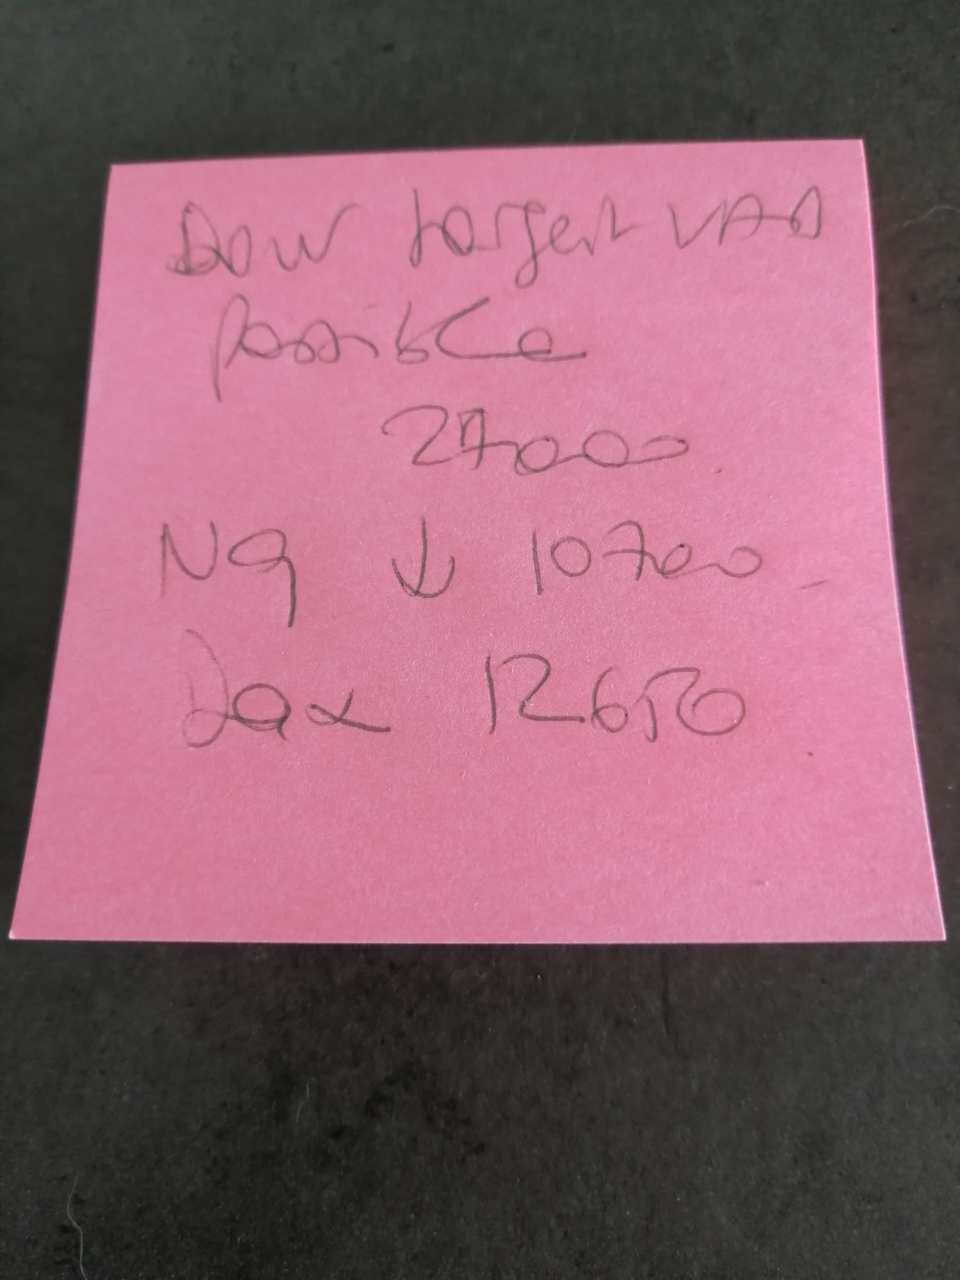 Dow target VAD
possible
27000
NQ ↓ 10700
Dax 12650